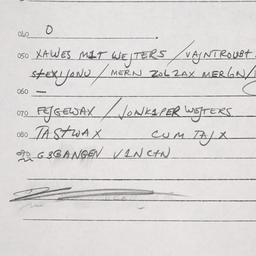 040 O
050 XAWES M1T WEJTERS / VAJNTROUBT
STEXIJONU / MERN ZOLZAX MERGN/
060 –
070 FEJGEWAX / JONK1PER WEJTERS
080 TASTWAX CUM TAJX
090 G3GANGEN V1NCTN